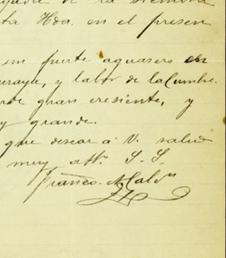 de la siembra
ta Hda. en el presen
un fuerte aguasero en
y labor de la Cumbre.
gran cresiente, y
y grande.
que desear á V. salud
muy atto. S. S.
Franco.